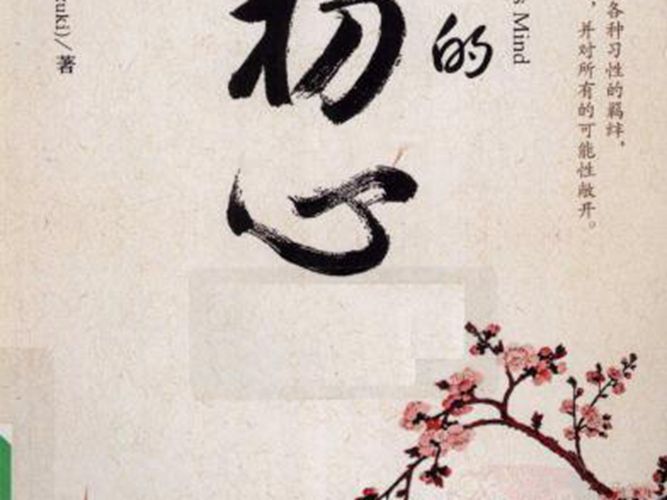 各种习性的羁绊，
，并对所有的可能性敞开。
s Mind
的
初心
uzuki)/著